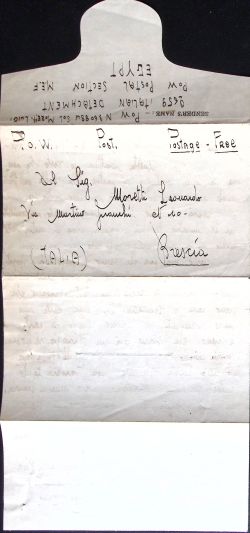 SENDER'S NAME:- POW N 380984 Sol. Moretti Luigi
2659 ITALIAN DETACHMENT
POW POSTAL SECTION M.E.F
EGYPT
P.O.W. Post. Postage - Free
Al Sig.
Moretti Leonardo
Via Martino Franchi
Brescia
(ITALIA)